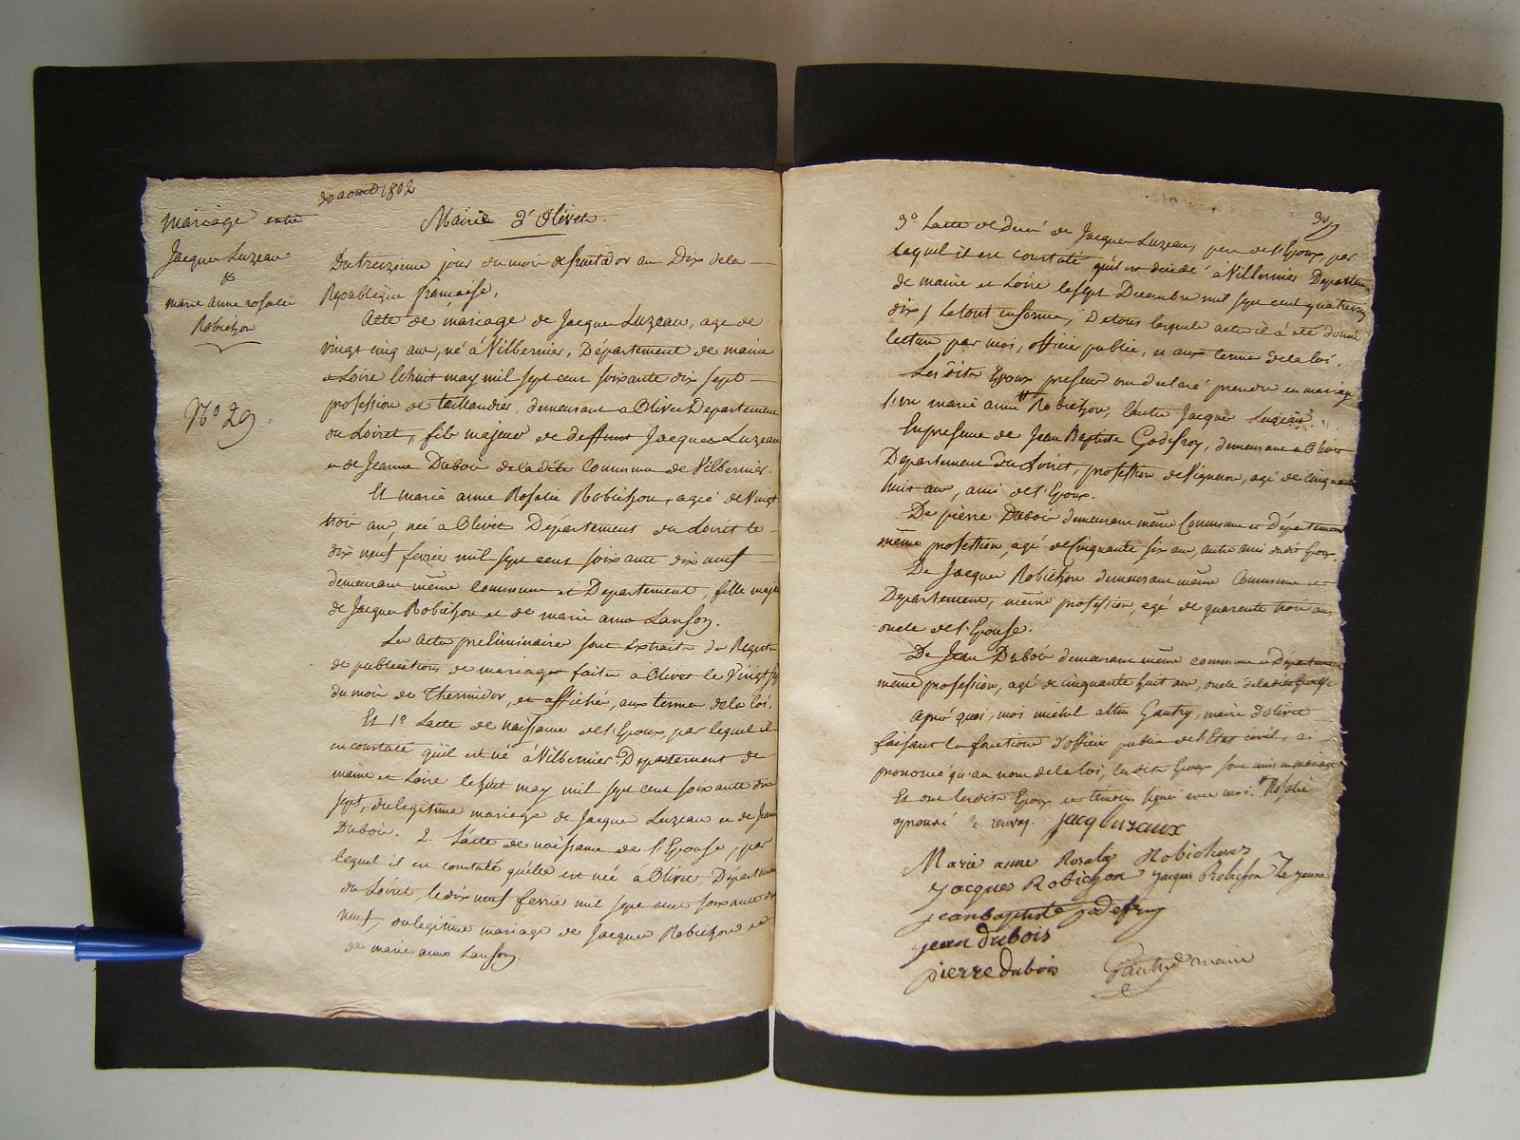 30 aout 1802
mariage entre
Jacques Luzeau
&
marie anne rosalie
Robichon
N° 29.
Mairie d'Olivet.
Du treizieme jour du mois de fructidor an Dix de la
Republique francaise,
Acte de mariage de Jacques Luzeau, age de
vingt cinq ans, né à Vilbernier, Département de maine
& Loire le huit may mil sept cent soixante dix sept
profession de taillandier, demeurant a Olivet Departement
du Loiret, fils majeur de deffunt Jacques Luzeau
et de Jeanne Dubois de la dite Commune de Vilbernier.
Et marie anne Rosalie Robichon, agée de Vingt
trois ans, née a Olivet Département du Loiret le
dix neuf fevrier mil sept cent soixante dix neuf
demeurant même Commune et Departement, fille majeure
de Jacques Robichon et de marie anne Lanson.
Les actes preliminaires sont extraits du Registre
de publications de mariages faites a Olivet le Vingt
du mois de Thermidor, et affiché, aux termes de la loi.
Et 1° L'acte de naissance de l'Epoux, par lequel il
est constaté qu'il est né à Vilbernier Departement de
maine et Loire le huit may mil sept cent soixante dix
sept, du legitime mariage de Jacques Luzeau et de Jeanne
Dubois. 2 L'acte de naissance de l'Epouse, par
lequel il est constaté qu'elle est née à Olivet Département
du Loiret, le dix neuf fevrier mil sept cent soixante dix
neuf, du legitime mariage de Jacques Robichon et
de marie anne Lanson.
3° L'acte de decès de Jacques Luzeau, pere de l'Epoux, par
lequel il est constaté qu'il est décédé à Vilbernier Departement
de maine et Loire le sept Decembre mil sept cent quatrevingt
dix, Le tout en forme, De tous lesquels actes il à été donné
lecture par moi, officier public, et aux termes de la loi.
Les dits Epoux presens ont declaré prendre en mariage
l'une marie anne Rle Robichon, l'autre Jacques Luzeau.
En presence de Jean Baptiste Godefroy, demeurant a Olivet
Departement du Loiret, profession de Vigneron, agé de cinquante
huit ans, ami de l'Epoux.
De pierre Dubois demeurant même Commune et département
même profession, agé de Cinquante six ans, autre ami dudit Epoux.
De Jacques Robichon demeurant même Commune et
Departement, même profession, agé de quarente trois ans
oncle de l'Epouse.
De Jean Dubois demeurant même commune et Département
même profession, agé de cinquante huit ans, oncle de la dite Epouse
Après quoi, moi michel Gautry, maire d'olivet
faisant les fonctions d'officier public de l'Etat civil, ai
prononcé qu'au nom de la loi, les dits Epoux sont unis en mariage
Et ont les dits Epoux et temoins signé avec moi. Rosalie
aprouvé le renvoy. jacq luzaux
Marie anne Rosalie Robichon
Jacques Robichon Jacques Robichon Le jeune
jean baptiste godeffroy
jean dubois
pierre dubois Gautry maire